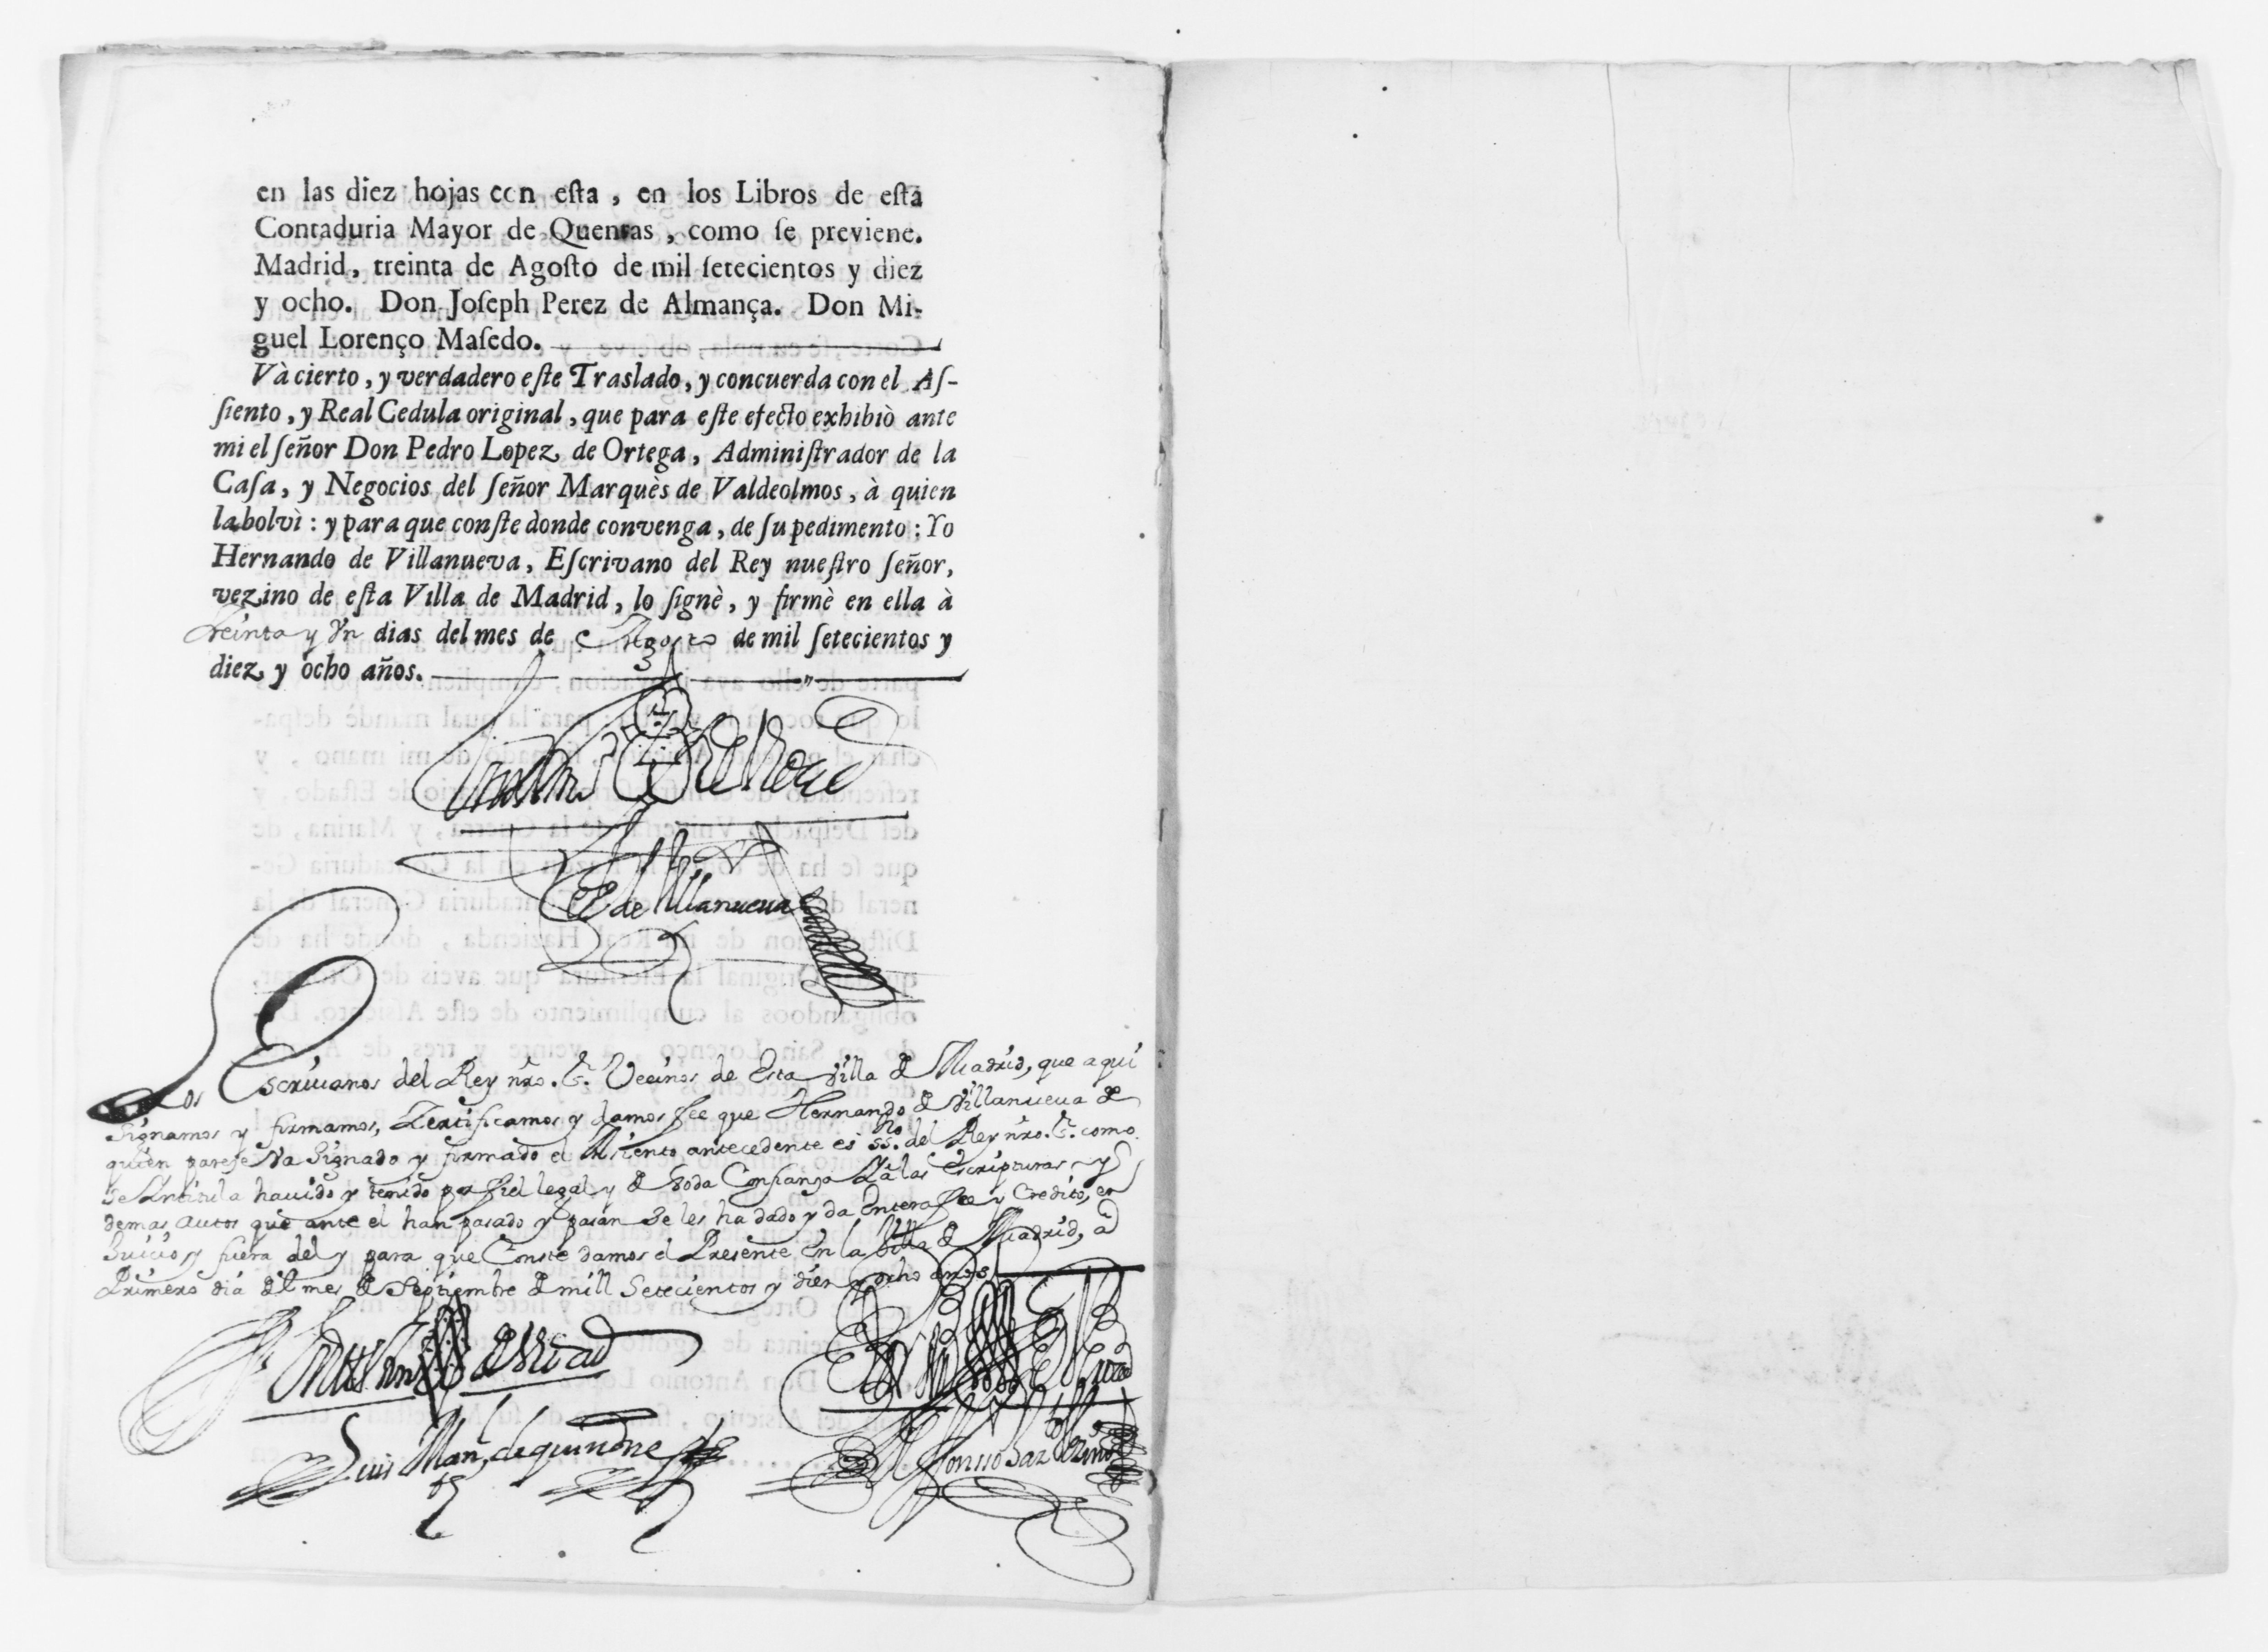 en las diez hojas con eſta, en los Libros de eſta
Contaduria Mayor de Quentas, como ſe previene.
Madrid, treinta de Agoſto de mil ſetecientos y diez
y ocho. Don Joſeph Perez de Almança. Don Mi-
guel Lorenço Maſedo.
Và cierto, y verdadero eſte Traslado, y concuerda con el Aſ-
ſiento, y Real Cedula original, que para eſte efecto exhibiò ante
mi el ſeñor Don Pedro Lopez de Ortega, Adminiſtrador de la
Caſa, y Negocios del ſeñor Marquès de Valdeolmos, à quien
la bolvì: y para que conſte donde convenga, de ſu pedimento: Yo
Hernando de Villanueva, Eſcrivano del Rey nueſtro ſeñor,
vezino de eſta Villa de Madrid, lo ſignè, y firmè en ella à
treinta y Vn dias del mes de Agosto de mil ſetecientos y
diez y ocho años.
de Villanueua
Los Escriuanos del Rey nro. Sr. Vecinos de Esta Villa de Madrid, que aqui
Signamos y firmamos, Zertificamos y damos fee que Hernando de Villanueua de
quien pareze Va Signado y firmado el Asiento antecedente es ssno. del Rey nro. Sr. como
Se Yntitula hauido y tenido por fiel legal y de toda Confianza Y a las escripturas y
demas autos que ante el han pasado y pasan Se les ha dado y da Entera fee y Credito, en
Juicio y fuera del y para que Conste damos el Presente En la Villa de Madrid, a
Primero dia del mes de Septiembre de mill Setecientos y diez y ocho años
Luis Man